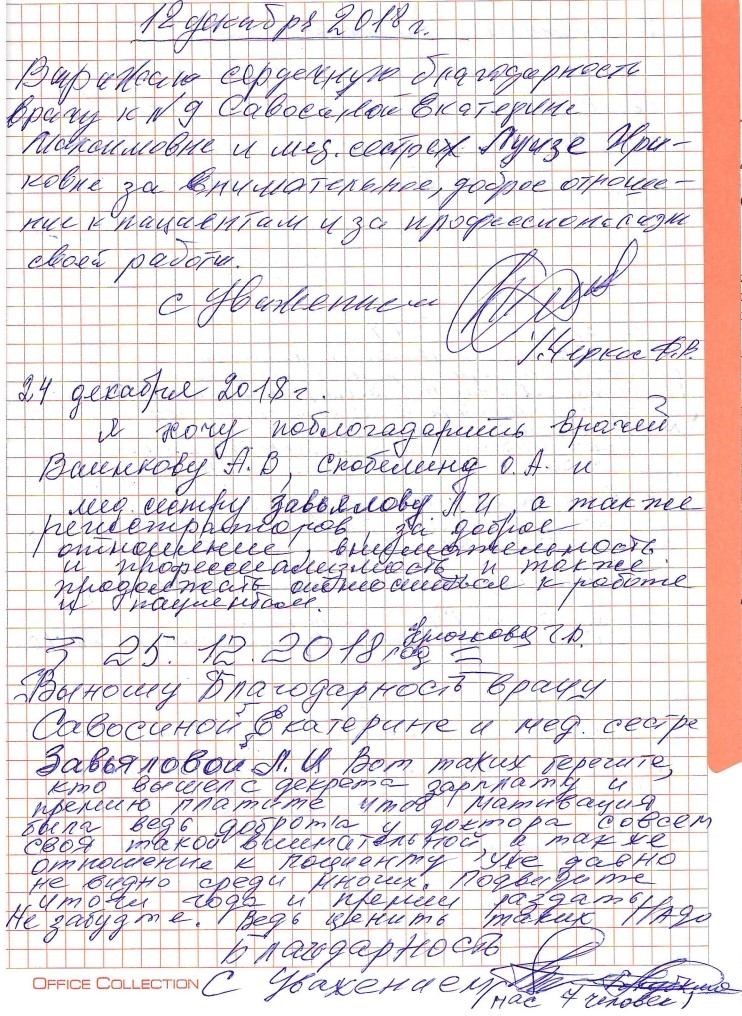 12 декабря 2018 г.
Выражаю сердечную благодарность
врачу к N 9 Савосиной Екатерине
Максимовне и мед. сестре Луизе Ири-
ковне за внимательное, доброе отноше-
ние к пациентам и за профессионализм
своей работы.
С уважением
24 декабря 2018 г.
Я хочу поблогадарить врачей
Ваинкову А.В, Скобелину О.А. и
мед. сестру Завьялову Л.И, а также
регистраторов за доброе
отношение, внимательность
и профессиализмость и также
продолжать относиться к работе
и пациентам.
Крючкова Г.В.
25.12.2018 год
Выношу Благодарность врачу
Савосиной Екатерине и мед. сестре
Завьяловой Л.И Вот таких берегите,
кто вышел с декрета зарплату и
премию платите чтоб мативация
была ведь доброта у доктора совсем
своя такой внимательной, а также
отношение к поциенту уже давно
не видно среди многих. Подведите
итоги года и премии раздать
Не забудте. Ведь ценить таких НАдо
Благодарность
OFFICE COLLECTION С Уважением
(нас 7 человек)